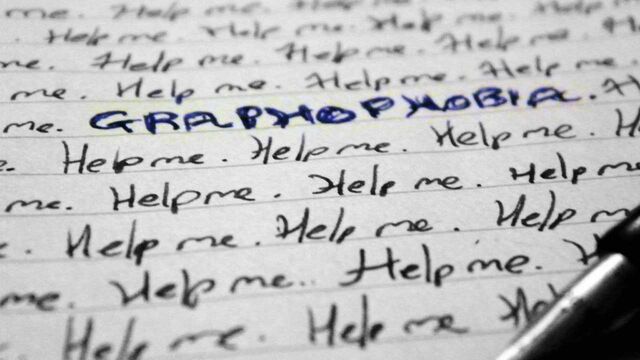 me. Help me. Help me. Help me.
Help me. Help me. Help me. Help me.
me. Help me. Help me. Help me.
me. Help me. Help me. Help me.
me. GRAPHOPHOBIA.
Help me. Help me. Help me.
me. Help me. Help me. Help me
Help me. Help me. Help me
me. Help me.. Help me.
Help me. Help me